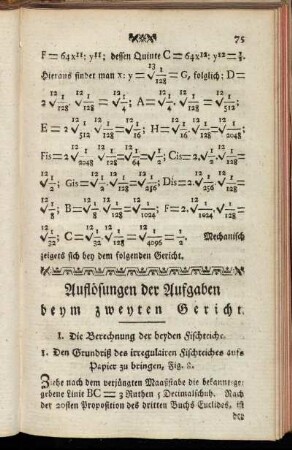 75
F = 64x¹¹: y¹¹; dessen Quinte C = 64x¹²: y¹² = ½.
Hieraus findet man x: y = ¹²√1/128 = G, folglich: D =
2 ¹²√1/128 ¹²√1/128 = ¹²√1/4; A = ¹²√1/4 ¹²√1/128 = ¹²√1/512;
E = 2 ¹²√1/512 ¹²√1/128 = ¹²√1/16; H = ¹²√1/16 ¹²√1/128 = ¹²√1/2048;
Fis = 2 ¹²√1/2048 ¹²√1/128 = ¹²√1/64 = ¹²√½; Cis = 2. ¹²√½. ¹²√1/128 =
¹²√½; Gis = ¹²√½; ¹²√1/128 = ¹²√1/256; Dis = 2. ¹²√1/256. ¹²√1/128 =
¹²√1/8; B = ¹²√1/8 ¹²√1/128 = ¹²√1/1024; F = 2. ¹²√1/1024. ¹²√1/128 =
¹²√1/32; C = ¹²√1/32 ¹²√1/128 = ¹²√1/4096 = ½. Mechanisch
zeigets sich bey dem folgenden Gericht.
Auflösungen der Aufgaben
beym zweyten Gericht.
I. Die Berechnung der beyden Fischteiche.
1. Den Grundriß des irregulairen Fischteiches aufs
Papier zu bringen, Fig. 8.
Ziehe nach dem verjüngten Maaßstabe die bekannte ge-
gebene Linie BC = 3 Ruthen 5 Decimalschuh. Nach
der 20sten Proposition des dritten Buchs Euclides, ist
der